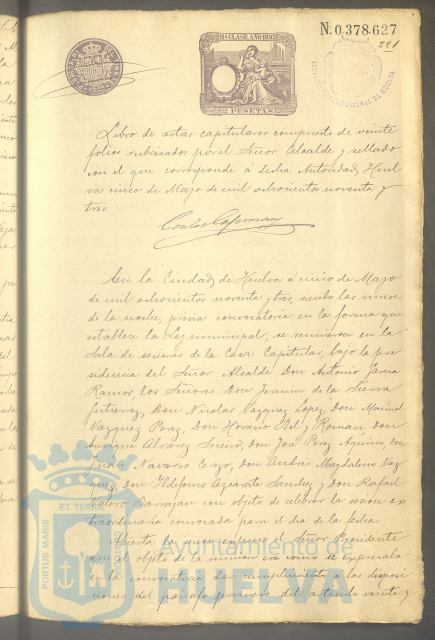 N. 0.378.627
221
11ª CLASE. AÑO 1893
2 PESETAS
Libro de actas capitulares compuesto de veinte
folios rubricados por el Señor Alcalde y sellado
con el que corresponde á dicha Autoridad, Huel
va cinco de Mayo de mil ochocientos noventa y
tres
En la Ciudad de Huelva á cinco de Mayo
de mil ochocientos noventa y tres, siendo las nueve
de la noche, previa convocatoria en la forma que
establece la Ley municipal, se reunieron en la
Sala de sesiones de la Casa Capitular, bajo la pre
sidencia del Señor Alcalde Don Antonio
Ramos, los Señores Don de la
Gutierrez, Don Nicolas Vazquez Lopez, Don Manuel
Vazquez Perez, Don Horacio Bel y Roman, don
Alvarez don José Perez don
Juan Navarro don Andrés Magdaleno Vaz
quez, don Ildefonso Azcárate Sanchez y don Rafael
con objeto de celebrar la sesion ex
traordinaria convocada para el dia de la fecha.
Abierta la Señor Presidente
que el objeto de la reunion era como se expresaba
en la convocatoria dar cumplimiento á las disposi
ciones del parrafo primero del articulo veinte y
PORTUS MARIS
ET TERRÆ
CUSTODIA
Ayuntamiento de
HUELVA